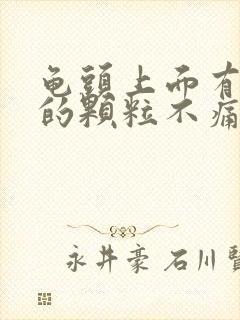 龟頭上而有
的顆粒不痛
永井豪 石川賢